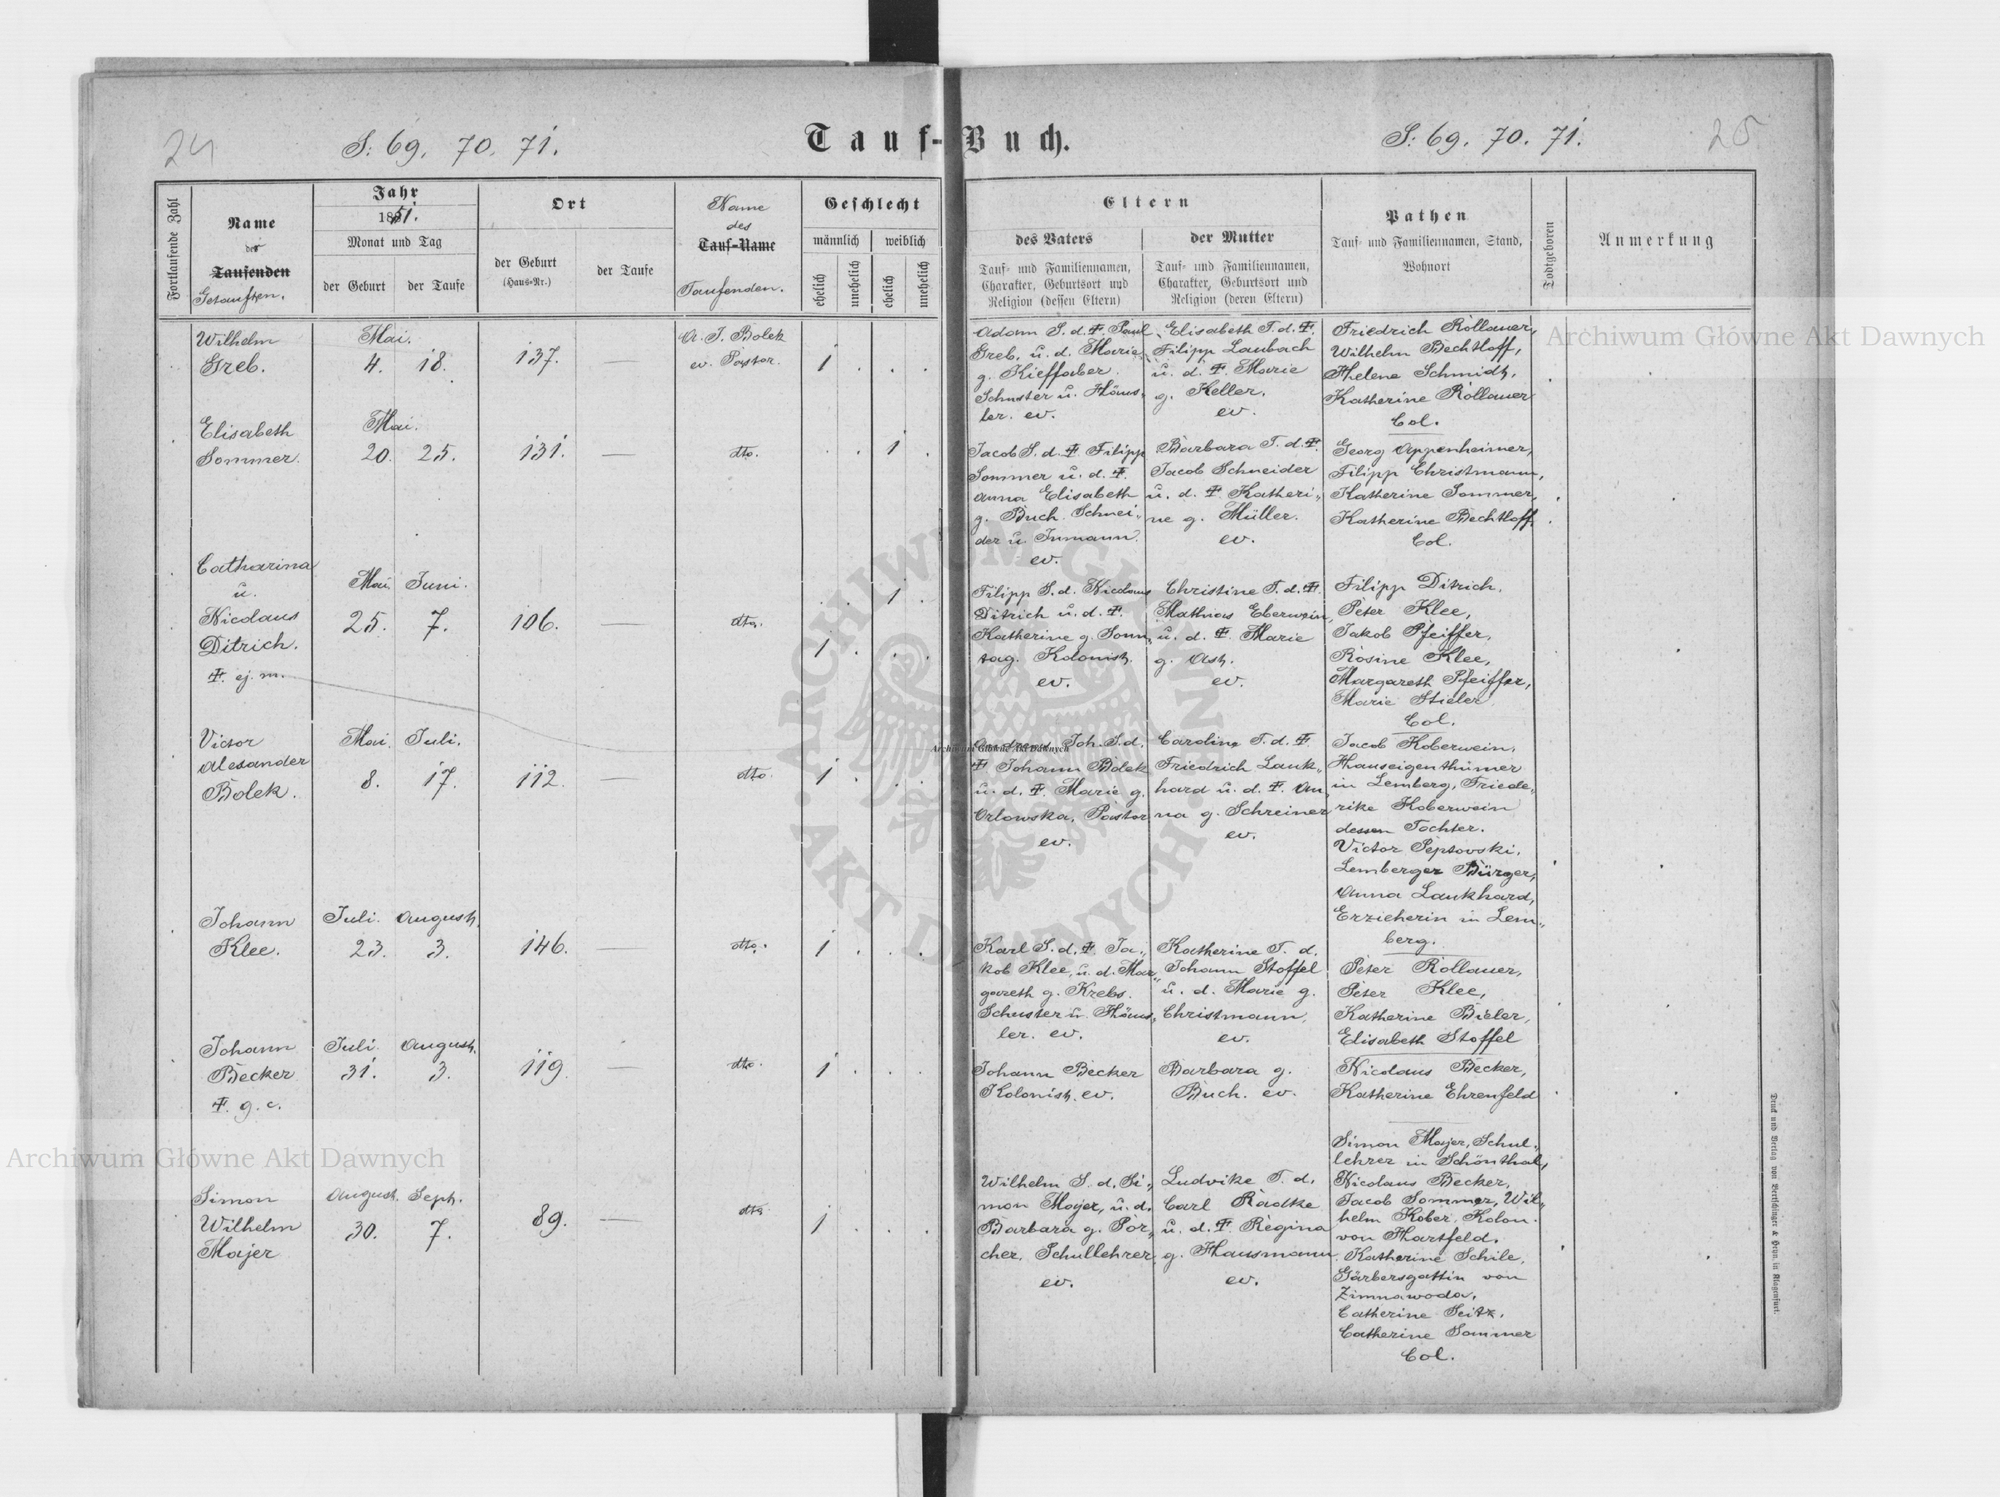 24
S: 69. 70. 71.
Tauf-Buch.
S: 69. 70. 71.
25
Fortlaufende Zahl
Name
der
Taufenden
Getauften.
Jahr
1851.
Monat und Tag
der Geburt
der Taufe
Ort
der Geburt
(Haus-Nr.)
der Taufe
Name
des
Tauf-Name
Taufenden.
Geschlecht
männlich
weiblich
ehelich
unehelich
ehelich
unehelich
Eltern
des Vaters
Tauf- und Familiennamen,
Charakter, Geburtsort und
Religion (dessen Eltern)
der Mutter
Tauf- und Familiennamen,
Charakter, Geburtsort und
Religion (deren Eltern)
Pathen
Tauf- und Familiennamen, Stand,
Wohnort
Todtgeboren
Anmerkung
Wilhelm
Greb.
Mai.
4. 18.
137.
A. J. Bolek
ev. Pastor.
1
Adam S. d. Ŧ. Paul
Greb, u. d. Marie
g. Kieffaber.
Schuster u. Häus-
ler. ev.
Elisabeth T. d. Ŧ.
Filipp Laubach
u. d. Ŧ. Marie
g. Keller.
ev.
Friedrich Rollauer,
Wilhelm Bechtloff,
Helene Schmidt,
Katherine Rollauer
Col.
Elisabeth
Sommer.
Mai.
20. 25.
131.
dto.
1
Jacob S. d. Ŧ. Filipp
Sommer u. d. Ŧ.
Anna Elisabeth
g. Buch. Schnei-
der u. Inmann.
ev.
Barbara T. d. Ŧ.
Jacob Schneider
u. d. Ŧ. Katheri-
ne g. Müller.
ev.
Georg Appenheimer,
Filipp Christmann,
Katherine Sommer,
Katherine Bechtloff,
Col.
Catharina
u.
Nicolaus
Ditrich.
Ŧ. ej. m.
Mai. Juni.
25. 7.
106.
dto.
1
1
Filipp S. d. Nicolaus
Ditrich u. d. Ŧ.
Katherine g. Sonn-
tag. Kolonist.
ev.
Christine T. d. Ŧ.
Mathias Eberwein,
u. d. Ŧ. Marie
g. Ast.
ev.
Filipp Ditrich.
Peter Klee,
Jakob Pfeiffer,
Rosine Klee,
Margareth Pfeiffer,
Marie Stieler
Col.
Victor
Alexander
Bolek.
Mai. Juli.
8. 17.
112.
dto.
1
Andreas Joh. S. d.
Ŧ Johann Bolek
u. d. Ŧ. Marie g.
Orlowska, Pastor
ev.
Caroline T. d. Ŧ
Friedrich Lauk-
hard u. d. Ŧ. An-
na g. Schreiner
ev.
Jacob Koberwein,
Hauseigenthümer
in Lemberg, Friede-
rike Koberwein
dessen Tochter.
Victor Peptovski,
Lemberger Bürger,
Anna Laukhard,
Erzieherin in Lem-
berg.
Johann
Klee.
Juli. August.
23. 3.
146.
dto.
1
Karl S. d. Ŧ. Ja-
kob Klee, u. d. Mar-
gareth g. Krebs.
Schuster u. Häus-
ler. ev.
Katherine T. d.
Johann Stoffel
u. d. Marie g.
Christmann.
ev.
Peter Rollauer,
Peter Klee,
Katherine Bieler,
Elisabeth Stoffel
Johann
Becker
Ŧ. g. c.
Juli. August.
31. 3.
119.
dto.
1
Johann Becker
Kolonist. ev.
Barbara g.
Buch. ev.
Nicolaus Becker,
Katherine Ehrenfeld
Simon
Wilhelm
Majer
August. Sept.
30. 7.
89.
dto
1
Wilhelm S. d. Si-
mon Majer, u. d.
Barbara g. Por-
cher. Schullehrer.
ev.
Ludvike T. d.
Carl Radtke
u. d. Ŧ. Regina
g. Hausmann
ev.
Simon Majer, Schul-
lehrer in Schönthal,
Nicolaus Becker,
Jacob Sommer, Wil-
helm Kober, Kolon.
von Hartfeld.
Katherine Schile,
Gärbersgattin von
Zimnawoda,
Catherine Seitz,
Catherine Sommer
Col.
Druck und Verlag von Bertschinger & Heyn, in Klagenfurt.
Archiwum Główne Akt Dawnych
Archiwum Główne Akt Dawnych
Archiwum Główne Akt Dawnych
ARCHIWUM GŁÓWNE AKT DAWNYCH